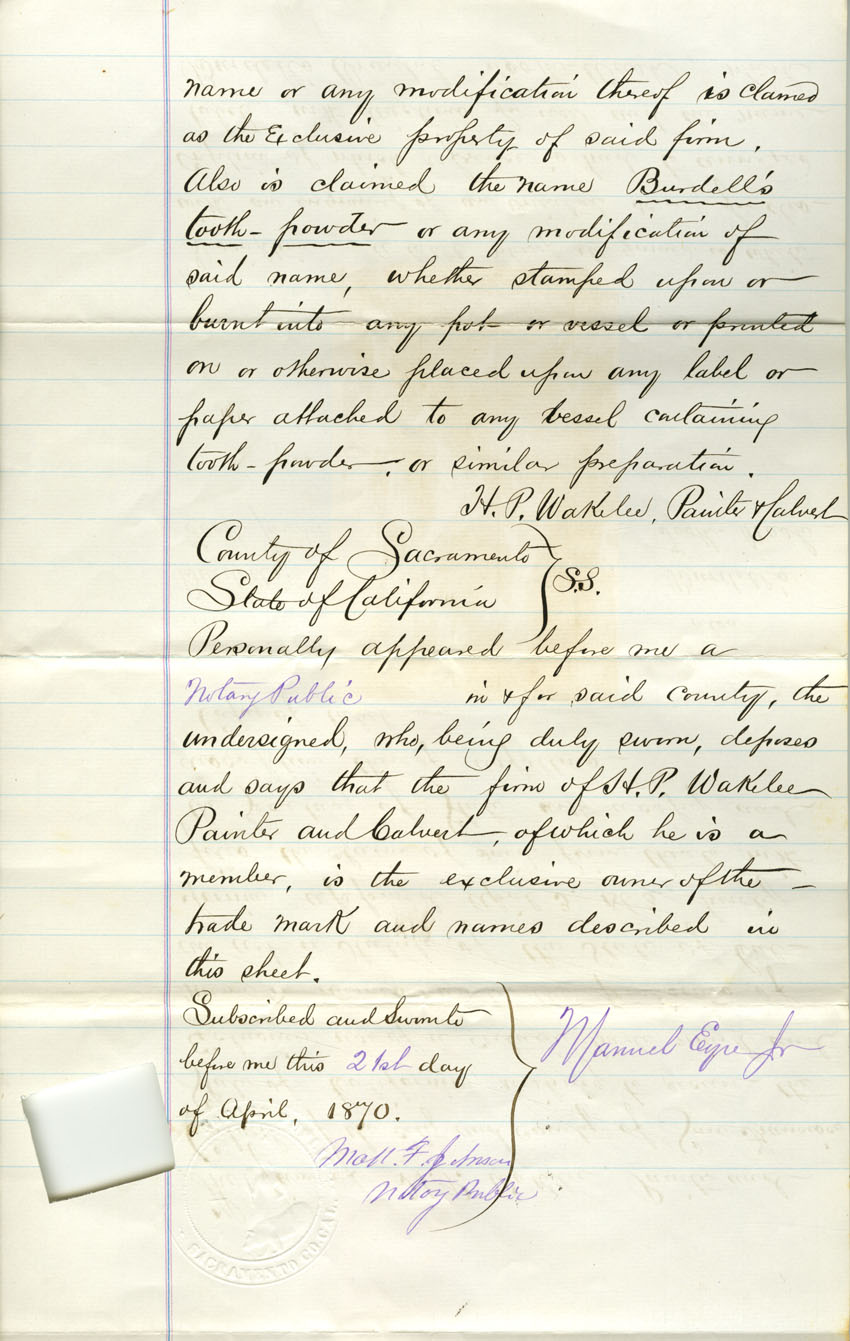 name or any modification thereof is claimed
as the Exclusive property of said firm.
Also is claimed the name Burdell's
tooth-powder or any modification of
said name, whether stamped upon or
burnt into any pot or vessel or printed
on or otherwise placed upon any label or
paper attached to any vessel containing
tooth-powder, or similar preparation.
H. P. Wakelee, Painter & Calvert
County of Sacramento
State of California } S.S.
Personally appeared before me a
Notary Public in & for said county, the
undersigned, who, being duly sworn, deposes
and says that the firm of H. P. Wakelee
Painter and Calvert, of which he is a
member, is the exclusive owner of the
trade mark and names described in
this sheet.
Subscribed and Sworn to
before me this 21st day
of April, 1870.
Manuel Eyre Jr
Matt. F. Johnson
Notary Public
SACRAMENTO CO. CAL.